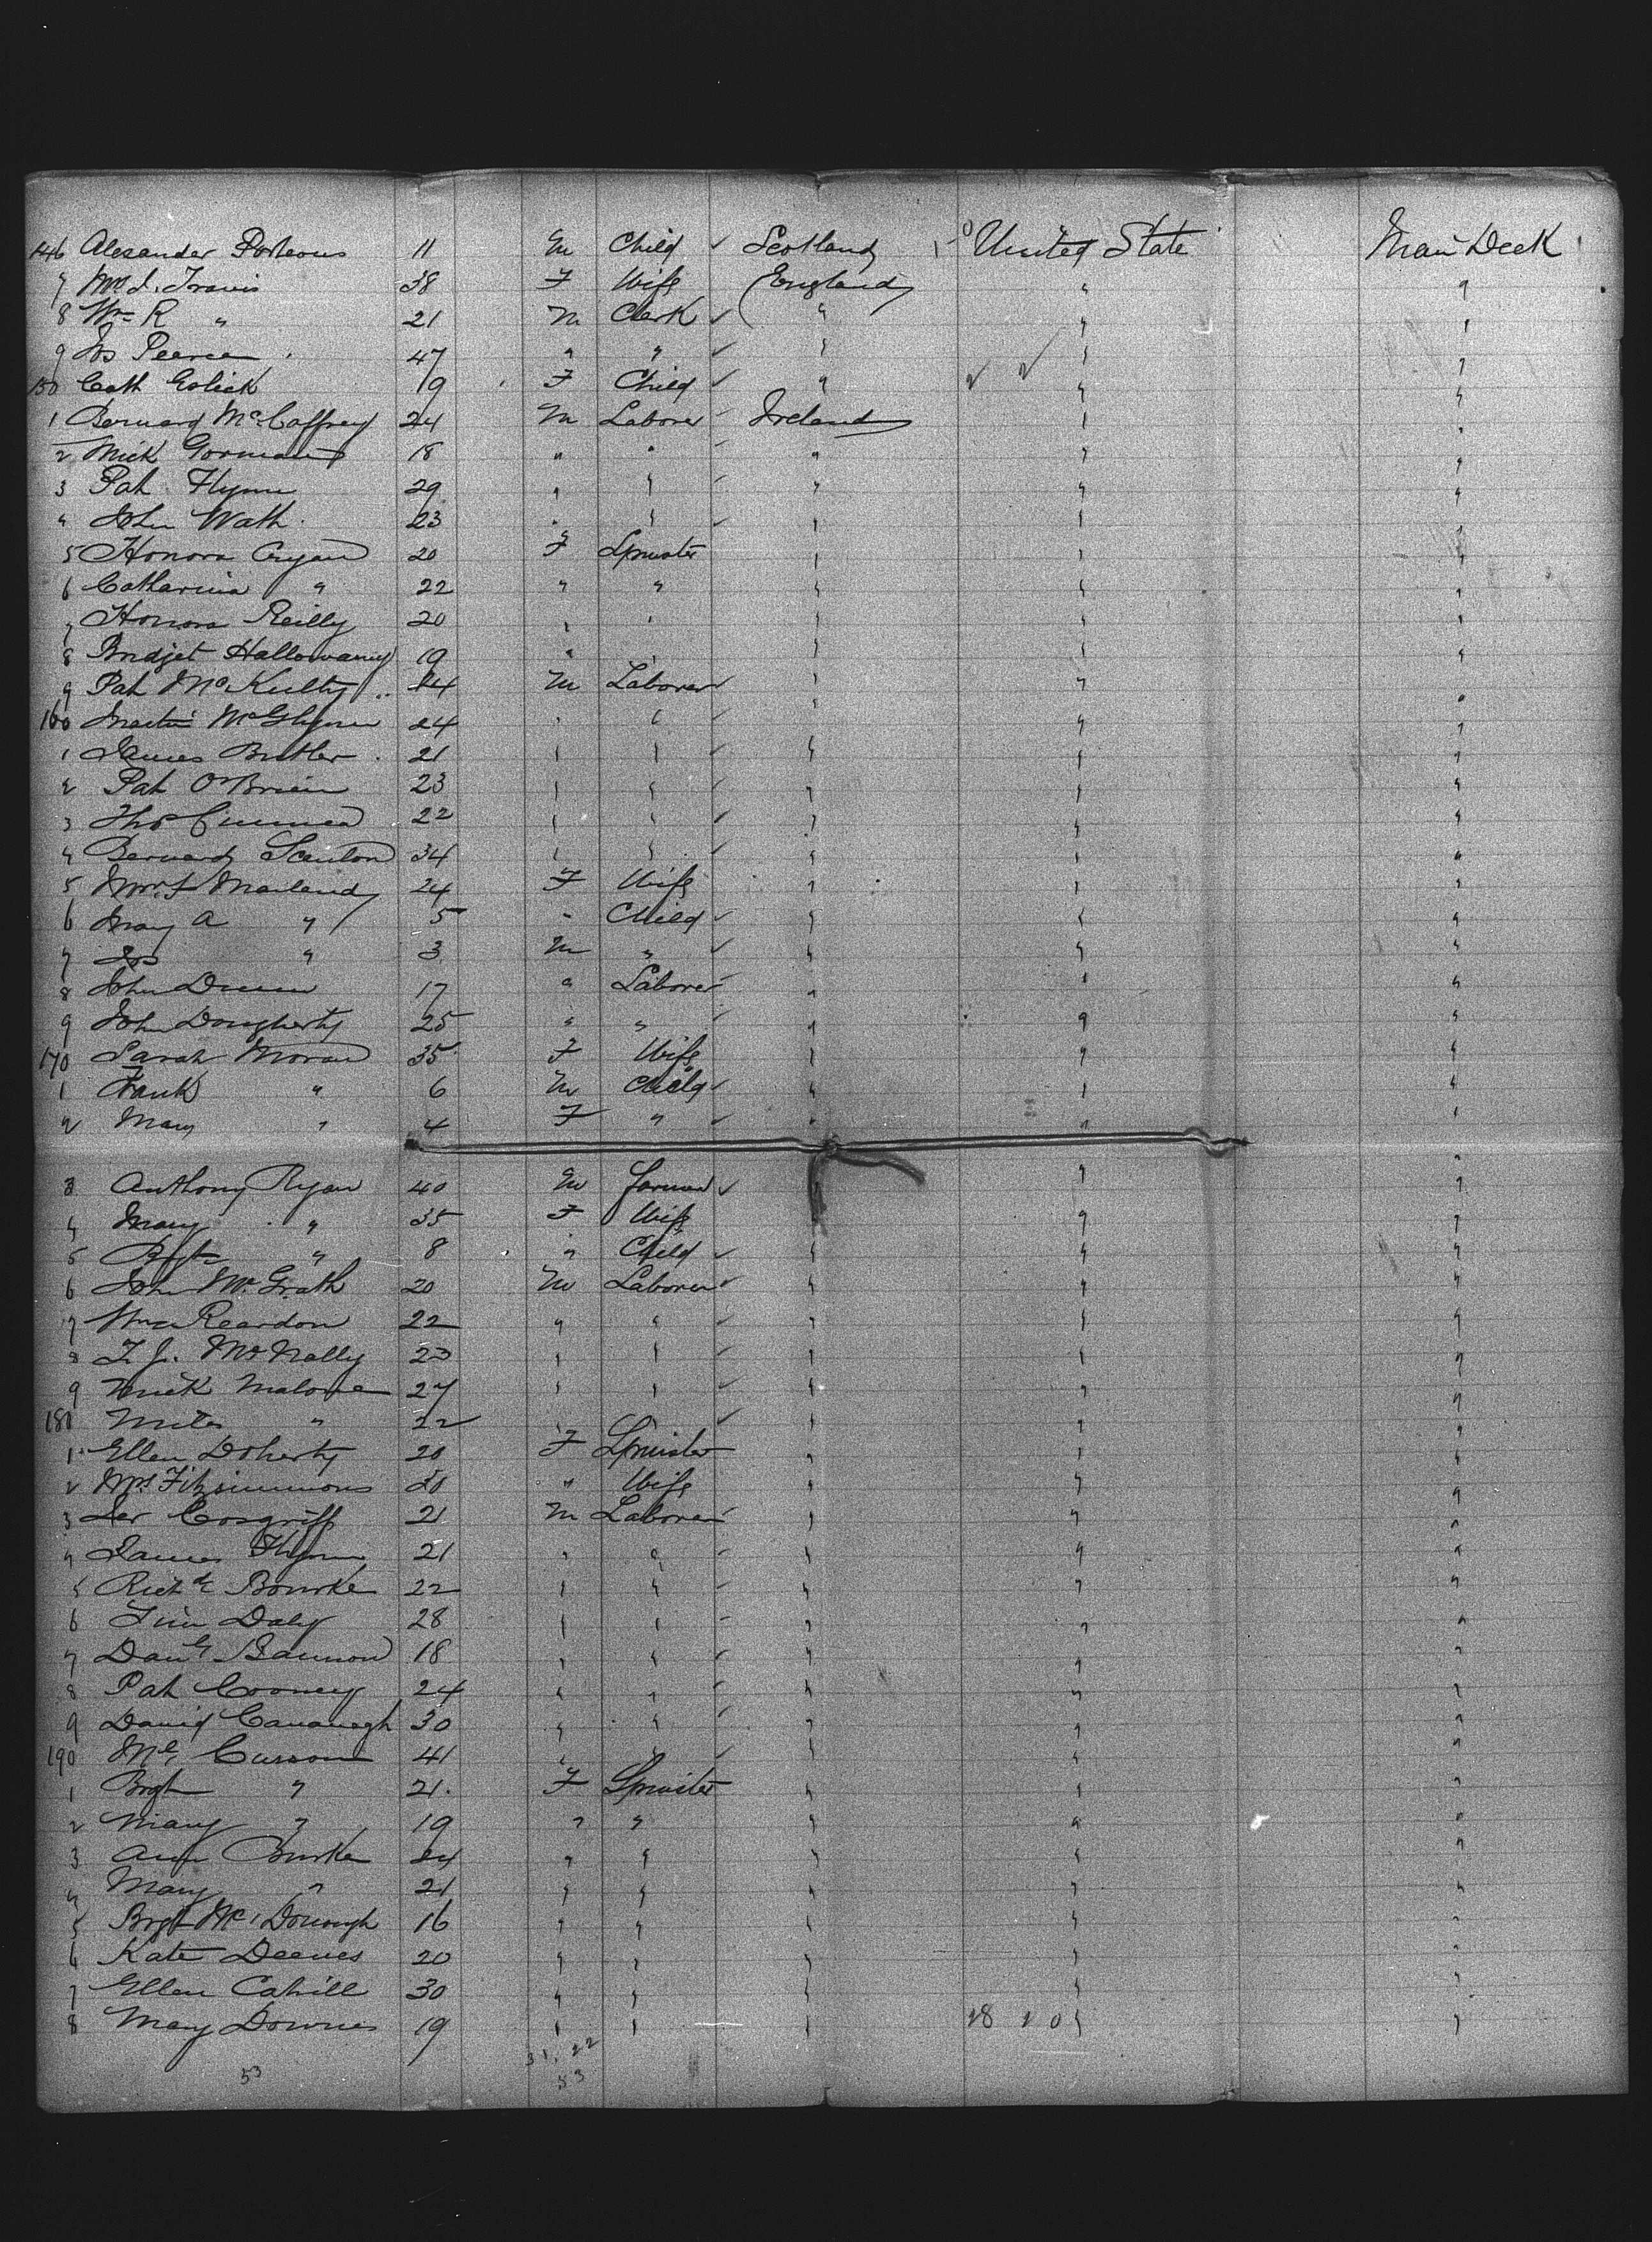 146 Alexander Porteous 11 M Child ✓ Scotland United State Main Deck
7 Mrs J. Travis 38 F Wife England " "
8 Wm R " 21 M Clerk ✓ " " "
9 Jos Pearce 47 " " ✓ " " "
150 Cath Golick 19 F Child ✓ " " "
1 Bernard McCaffrey 24 M Laborer Ireland " "
2 Mick Gorman 18 " " " " "
3 Pat Flynn 29 " " " " "
4 John Wath 23 " " " " "
5 Honora Cryan 20 F Spinster " " "
6 Catharina " 22 " " " " "
7 Honora Reilly 20 " " " " "
8 Bridjet Hallowaney 19 " " " " "
9 Pat McKulty 24 M Laborer " " "
160 Martin McGlynn 24 " " " " "
1 James Butler 21 " " " " "
2 Pat O'Brien 23 " " " " "
3 Thos 22 " " ✓ " " "
4 Bernard Scanlon 34 " " ✓ " " "
5 Mrs Marland 24 F Wife " " "
6 Mary A " 5 " Child ✓ " " "
7 Jos " 3 M " ✓ " " "
8 John 17 " Laborer " " "
9 John Dougherty 25 " " " " "
170 Sarah Moran 35 F Wife " " "
1 Frank " 6 M Child ✓ " " "
2 Mary " 4 F " ✓ " " "
3 Anthony Ryan 40 M Farmer ✓ " "
4 Mary " 35 F Wife " " "
5 Bgt " 8 " Child ✓ " " "
6 John McGrath 20 M Laborer " " "
7 Wm Reardon 22 " " " " "
8 T. J. McNally 23 " " " " "
9 Mick Malone 27 " " ✓ " " "
180 Miles " 22 " ✓ " " "
1 Ellen Doherty 20 F Spinster " " "
2 Mrs Fitzsimmons 20 " Wife " " "
3 Jer Cosgriff 21 M Laborer " " "
4 James Flynn 21 " " " " "
5 Richd Bourke 22 " " " " "
6 Tim Daly 28 " " " " "
7 Danl Bannon 18 " " " " "
8 Pat Cooney 24 " " " " "
9 David Cavanagh 30 " " " " "
190 Ml Curson 41 " " ✓ " " "
1 Bgt " 21 F Spinster " " "
2 Mary " 19 " " " " "
3 Ann Burke 24 " " " " "
4 Mary " 21 " " " " "
5 Bgt McDonough 16 " " " " "
6 Kate Deeves 20 " " " " "
7 Ellen Cahill 30 " " " " "
8 Mary Downes 19 " " " "
53 31. 22
53